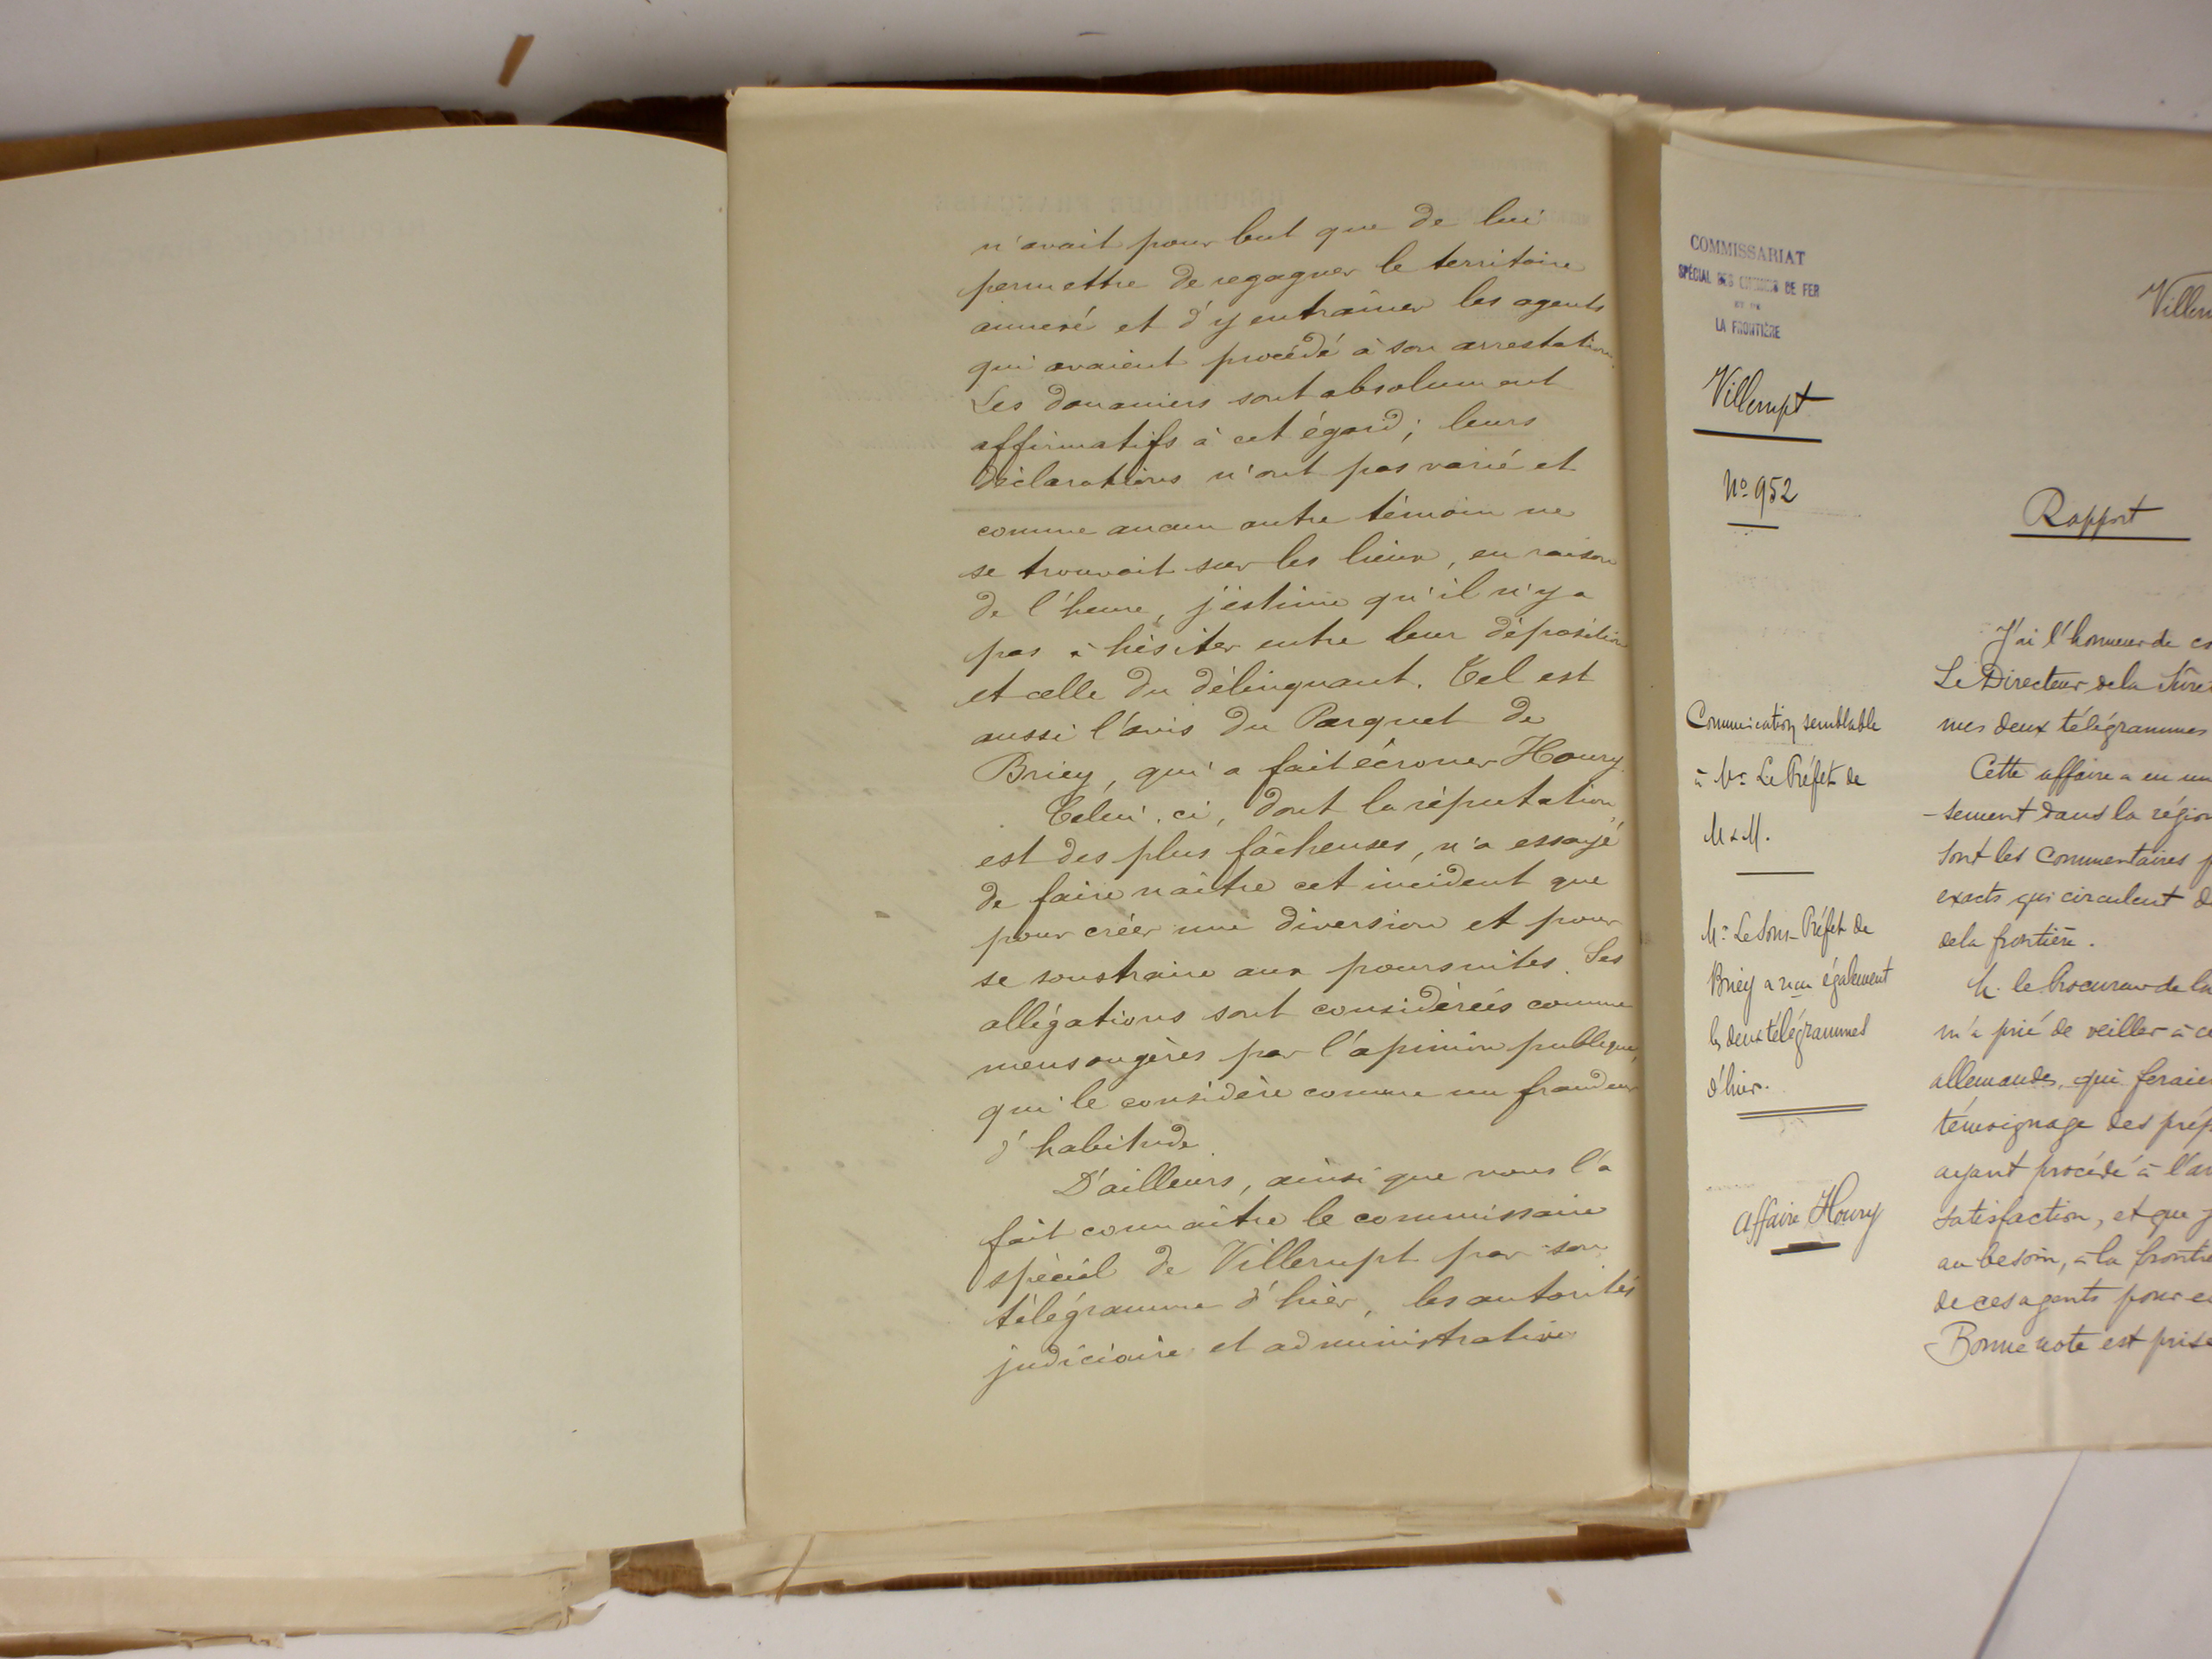 n'avait pour but que de lui
permettre de regagner le territoire
annexé et d'y entraîner les agents
qui avaient procédé à son arrestation.
Les douaniers sont absolument
affirmatifs à cet égard; leurs
déclarations n'ont pas varié et
comme aucun autre témoin ne
se trouvait sur les lieux, en raison
de l'heure, j'estime qu'il n'y a
pas à hésiter entre leur déposition
et celle du délinquant. Tel est
aussi l'avis du Parquet de
Briey, qui a fait écrouer Houry.
Celui-ci, dont la réputation
est des plus fâcheuses, n'a essayé
de faire naître cet incident que
pour créer une diversion et pour
se soustraire aux poursuites. Ses
allégations sont considérées comme
mensongères par l'opinion publique,
qui le considère comme un fraudeur
d'habitude.
D'ailleurs, ainsi que vous l'a
fait connaître le commissaire
spécial de Villerupt par son
télégramme d'hier, les autorités
judiciaire et administrative
COMMISSARIAT
SPÉCIAL DES CHEMINS DE FER
ET DE
LA FRONTIÈRE
Villerupt
No 952
Communication semblable
à Mr Le Préfet de
M & M.
Mr Le Sous-Préfet de
Briey a reçu également
les deux télégrammes
d'hier.
Affaire Houry
Villeru
Rapport
J'ai l'honneur de co
Le Directeur de la Sûre
mes deux télégrammes
Cette affaire a eu un
-sement dans la région
sont les commentaires p
exacts qui circulent d
de la frontière.
M. le Procureur de la
m'a prié de veiller à ce
allemandes, qui feraien
témoignage des prép
ayant procédé à l'ar
satisfaction, et que j
au besoin, à la frontiè
de ces agents pour e
Bonne note est prise